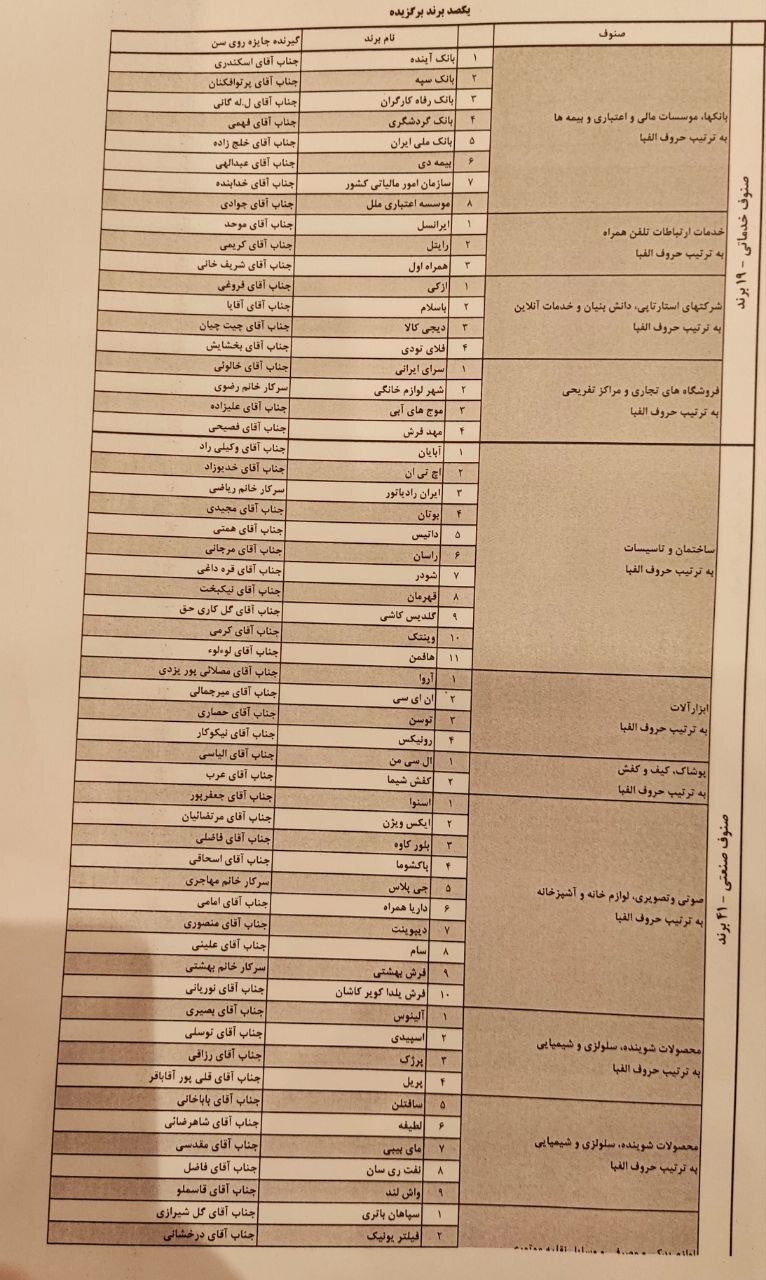 یکصد برند برگزیده
صنوف نام برند گیرنده جایزه روی سن
صنوف خدماتی - ۱۹ برند
بانکها، موسسات مالی و اعتباری و بیمه ها
به ترتیب حروف الفبا
۱ بانک آینده جناب آقای اسکندری
۲ بانک سپه جناب آقای پرتوافکنان
۳ بانک رفاه کارگران جناب آقای ل.له گانی
۴ بانک گردشگری جناب آقای فهمی
۵ بانک ملی ایران جناب آقای خلج زاده
۶ بیمه دی جناب آقای عبدالهی
۷ سازمان امور مالیاتی کشور جناب آقای خدابنده
۸ موسسه اعتباری ملل جناب آقای جوادی
خدمات ارتباطات تلفن همراه
به ترتیب حروف الفبا
۱ ایرانسل جناب آقای موحد
۲ رایتل جناب آقای کریمی
۳ همراه اول جناب آقای شریف خانی
شرکتهای استارتاپی، دانش بنیان و خدمات آنلاین
به ترتیب حروف الفبا
۱ ازکی جناب آقای فروغی
۲ باسلام جناب آقای آقایا
۳ دیجی کالا جناب آقای چیت چیان
۴ فلای تودی جناب آقای بخشایش
فروشگاه های تجاری و مراکز تفریحی
به ترتیب حروف الفبا
۱ سرای ایرانی جناب آقای خالوئی
۲ شهر لوازم خانگی سرکار خانم رضوی
۳ موج های آبی جناب آقای علیزاده
۴ مهد فرش جناب آقای فصیحی
صنوف صنعتی - ۴۱ برند
ساختمان و تاسیسات
به ترتیب حروف الفبا
۱ آبایان جناب آقای وکیلی راد
۲ اچ تی ان جناب آقای خدیوزاد
۳ ایران رادیاتور سرکار خانم ریاضی
۴ بوتان جناب آقای مجیدی
۵ داتیس جناب آقای همتی
۶ راسان جناب آقای مرجانی
۷ شودر جناب آقای قره داغی
۸ قهرمان جناب آقای نیکبخت
۹ گلدیس کاشی جناب آقای گل کاری حق
۱۰ وینتک جناب آقای کرمی
۱۱ هافمن جناب آقای لوءلوء
ابزارآلات
به ترتیب حروف الفبا
۱ آروا جناب آقای مصلائی پور یزدی
۲ ان ای سی جناب آقای میرجمالی
۳ توسن جناب آقای حصاری
۴ رونیکس جناب آقای نیکوکار
پوشاک، کیف و کفش
به ترتیب حروف الفبا
۱ ال.سی من جناب آقای الیاسی
۲ کفش شیما جناب آقای عرب
صوتی وتصویری، لوازم خانه و آشپزخانه
به ترتیب حروف الفبا
۱ اسنوا جناب آقای جعفرپور
۲ ایکس ویژن جناب آقای مرتضائیان
۳ بلور کاوه جناب آقای فاضلی
۴ پاکشوما جناب آقای اسحاقی
۵ جی پلاس سرکار خانم مهاجری
۶ داریا همراه جناب آقای امامی
۷ دیپوینت جناب آقای منصوری
۸ سام جناب آقای علینی
۹ فرش بهشتی سرکار خانم بهشتی
۱۰ فرش یلدا کویر کاشان جناب آقای نوریانی
محصولات شوینده، سلولزی و شیمیایی
به ترتیب حروف الفبا
۱ آلینوس جناب آقای بصیری
۲ اسپیدی جناب آقای توسلی
۳ پرژک جناب آقای رزاقی
۴ پریل جناب آقای قلی پور آقاباقر
محصولات شوینده، سلولزی و شیمیایی
به ترتیب حروف الفبا
۵ سافتلن جناب آقای باباخانی
۶ لطیفه جناب آقای شاهرضائی
۷ مای بیبی جناب آقای مقدسی
۸ نفت ری سان جناب آقای فاضل
۹ واش لند جناب آقای قاسملو
۱ سپاهان باتری جناب آقای گل شیرازی
۲ فیلتر یونیک جناب آقای درخشانی